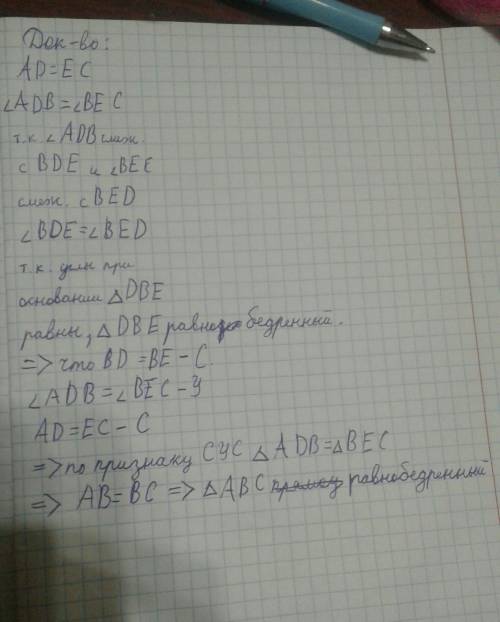 Док-во:
AD=EC
∠ADB=∠BEC
т.к. ∠ADB смеж.
с BDE и ∠BEC
смеж. с BED
∠BDE=∠BED
т.к. углы при
основании △DBE
равны, △DBE равнобедренный.
=> что BD=BE-C.
∠ADB=∠BEC-У
AD=EC-C
=> по признаку СУС △ADB=△BEC
=> AB=BC => △ABC равнобедренный